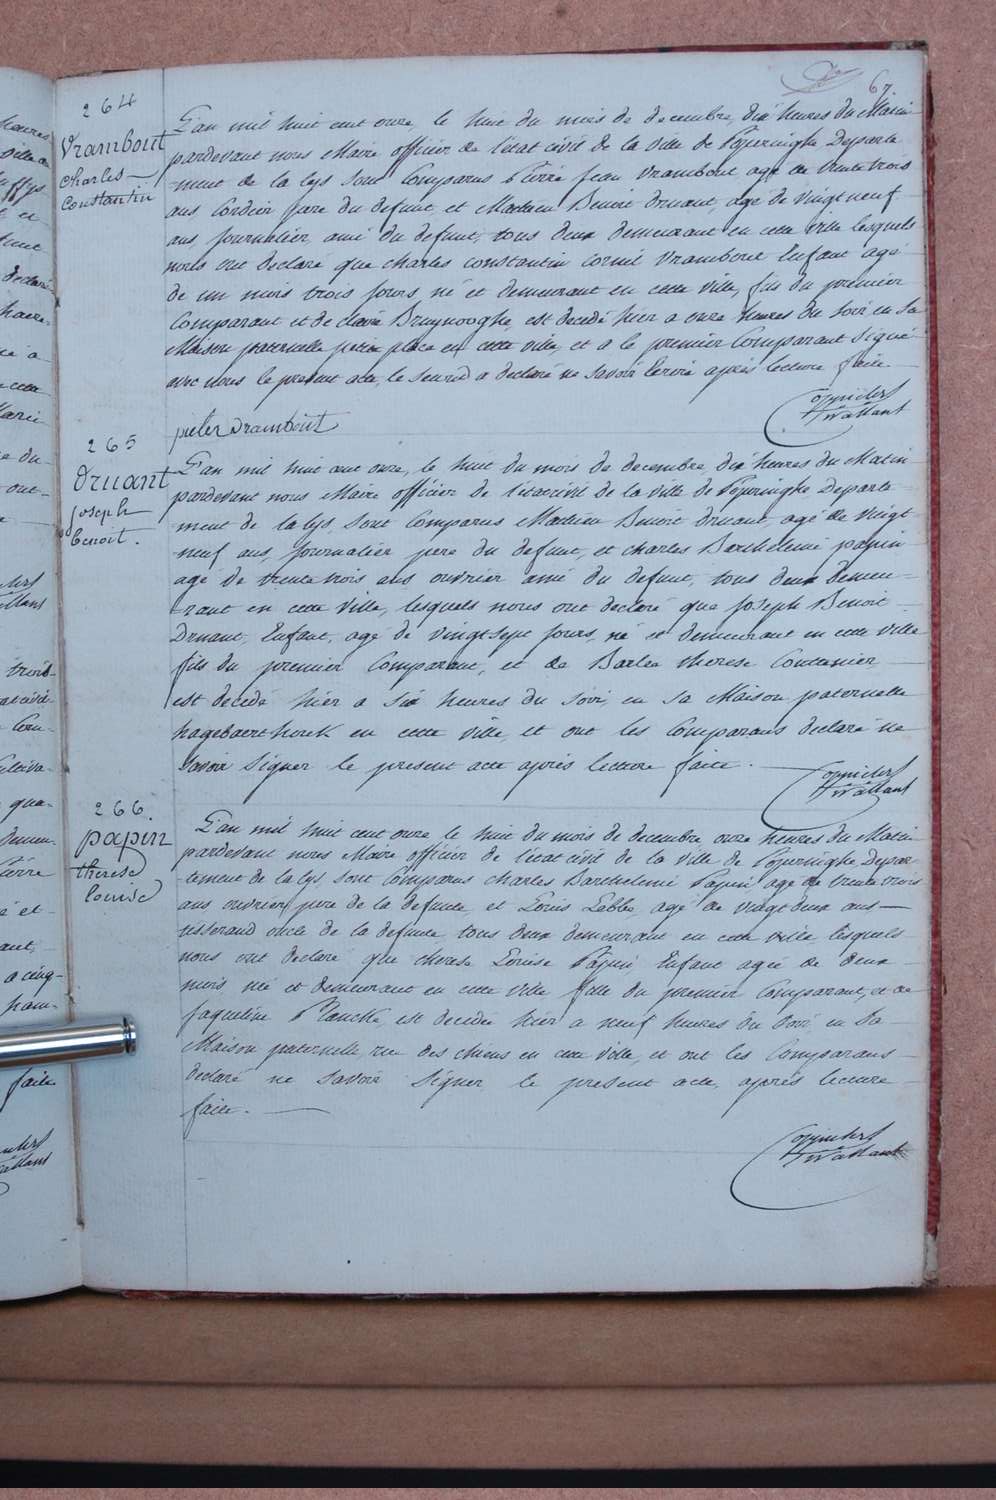 67
264
Vrambout
Charles
Constantin
L'an mil huit cent onze, le huit du mois de decembre, dix heures du Matin
pardevant nous Maire officier de l'état civil de la ville de Poperinghe Departe
-ment de la lys sont Comparus Pierre jean Vrambout agé de trente trois
ans Cordier pere du defunt, et Mathieu Benoit Druant, agé de vingt neuf
ans, journalier, ami du defunt, tous deux demeurant en cette ville lesquels
nous ont declaré que charles constantin cornil Vrambout Enfant agé
de un mois trois jours, né et demeurant en cette ville, fils du premier
Comparant et de Bruynooghe, est decedé hier a onze heures du soir en sa
Maison paternelle petite place en cette ville, et a le premier Comparant Signé
avec nous le present acte, le second a declaré ne savoir Ecrire après lecture faite
pieter vrambout
265
Druant
joseph
benoit.
L'an mil huit cent onze, le huit du mois de decembre, dix heures du Matin
pardevant nous Maire officier de l'état civil de la ville de Poperinghe Departe
ment de la lys, sont Comparus Mathieu Benoit Druant, agé de vingt
neuf ans, journalier pere du defunt, et charles Barthelemi papin
agé de trente trois ans ouvrier ami du defunt, tous deux demeu-
-rant en cette ville, lesquels nous ont declaré que joseph Benoit
Druant, Enfant, agé de vingt sept jours, né et demeurant en cette ville
fils du premier Comparant, et de Barbe therese
est decedé hier a six heures du soir, en sa Maison paternelle
hagebaerthouck en cette ville, et ont les Comparans declaré ne
savoir signer le present acte après lecture faite.
266.
papin
therese
louise
L'an mil huit cent onze le huit du mois de decembre onze heures du Matin
pardevant nous Maire officier de l'état civil de la ville de Poperinghe Depar-
-tement de la lys, sont Comparus charles Barthelemi Papin agé de trente trois
ans ouvrier, pere de la defunte, et Louis Lebbe, agé de vingt deux ans
tisserand oncle de la defunte tous deux demeurant en cette ville lesquels
nous ont declaré que therese Louise Papin Enfant agée de deux
mois née et demeurant en cette ville fille du premier Comparant, et de
jaqueline Plancke, est decedée hier a neuf heures du soir en sa
Maison paternelle, rue des chiens en cette ville, et ont les Comparans
declaré ne savoir signer le present acte, après lecture
faite.